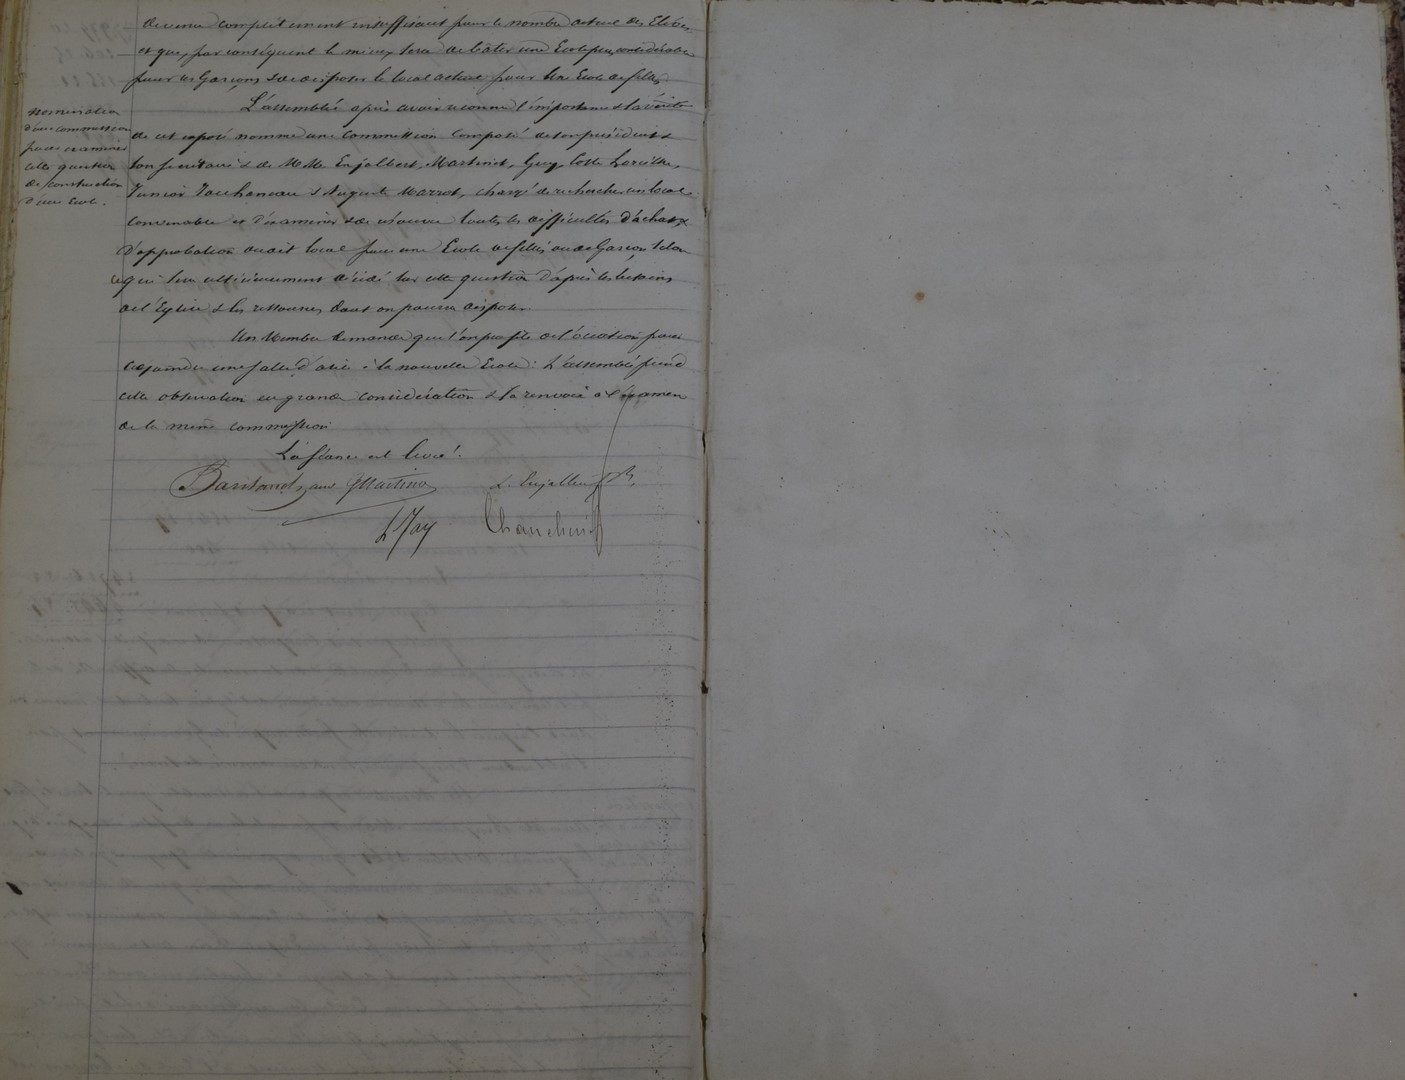 devenu complètement insuffisant pour le nombre actuel des Elèves
et que, par conséquent le mieux sera de bâtir une Ecole plus considérable
pour les Garçons & de disposer le local actuel pour une Ecole de filles
L'assemblée après avoir reconnu l'importance & la vérité
de cet exposé nomme une Commission Composé de son président
son secrétaire & de MM. Enjalbert, Martinet, Guy, Coste
Junior & Auguste Marrot, chargé de rechercher un local
convenable et d'examiner & de résoudre toutes les difficultés d'achat &
d'approbation dudit local pour une Ecole de filles ou de Garçons selon
ce qui sera ultérieurement décidé sur cette question d'après les besoins
de l'Eglise & les ressources dont on pourra disposer.
Un Membre demande que l'on profite de l'occasion pour
adjoindre une salle d'asile à la nouvelle Ecole : L'assemblée prend
cette observation en grande considération & la renvoie à l'examen
de la même commission
La séance est levée.
nomination
d'une commission
pour examiner
cette question
de construction
d'une Ecole.
L Jay